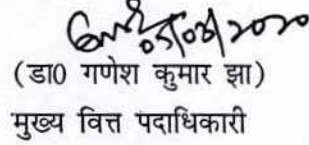 05/08/2020
(डा0 गणेश कुमार झा)
मुख्य वित्त पदाधिकारी